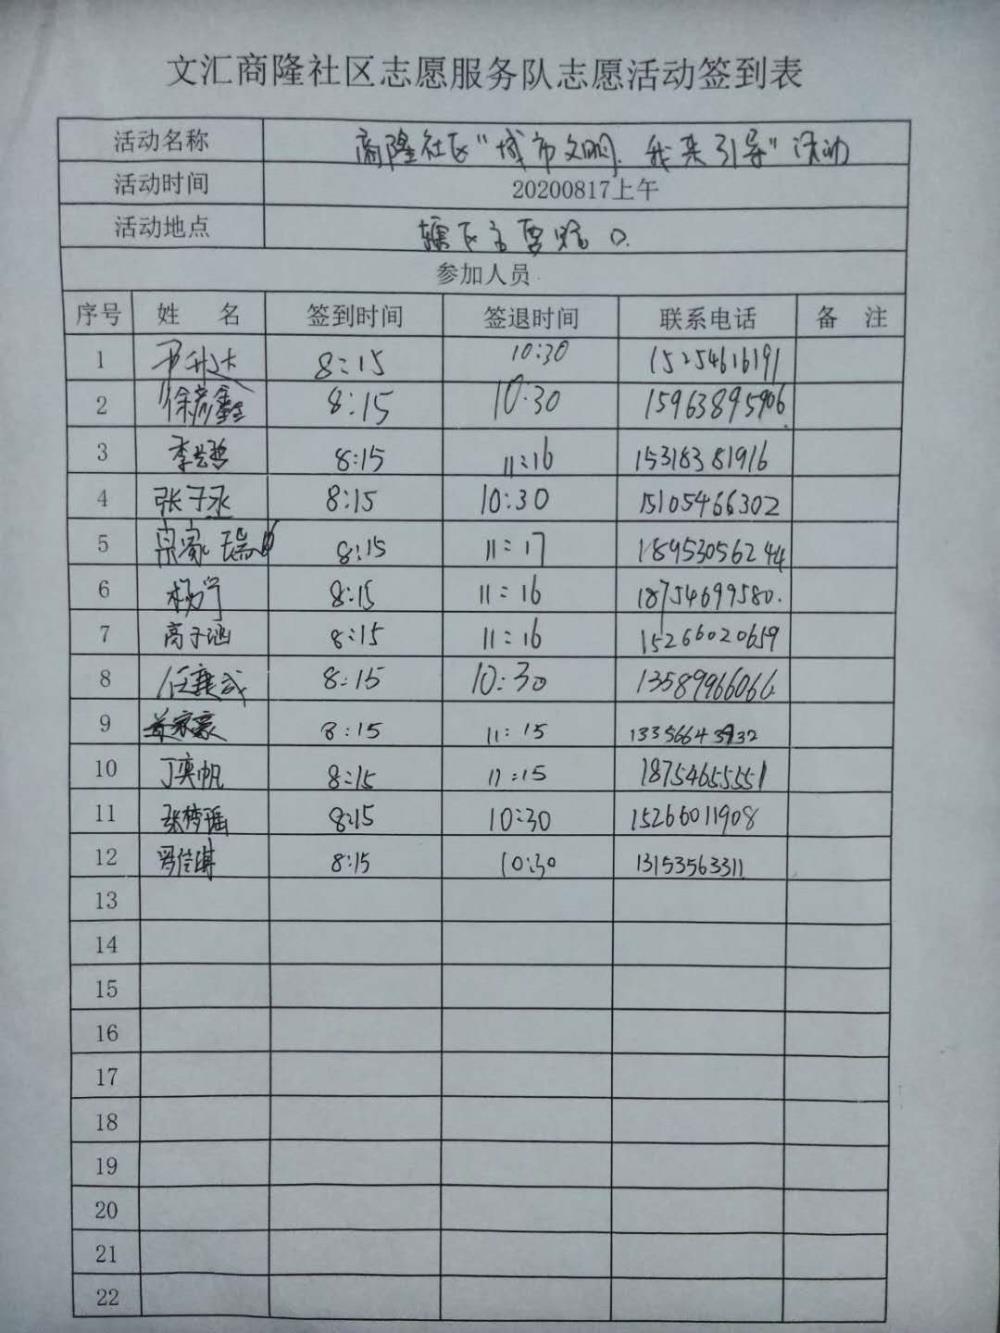 文汇商隆社区志愿服务队志愿活动签到表
活动名称 商隆社区"城市文明、我来引导"活动
活动时间 20200817上午
活动地点 辖区主要路口
参加人员
序号 姓 名 签到时间 签退时间 联系电话 备 注
1 8:15 10:30 15254616191
2 徐彦鑫 8:15 10:30 15963895906
3 8:15 11:16 15318381916
4 张子丞 8:15 10:30 15105466302
5 宗家瑞 8:15 11:17 18953056244
6 杨宁 8:15 11:16 18754699580
7 高子涵 8:15 11:16 15266020659
8 8:15 10:30 13589966066
9 8:15 11:15
10 丁奕帆 8:15 11:15 18754655551
11 张梦瑶 8:15 10:30 15266011908
12 8:15 10:30 13153563311
13
14
15
16
17
18
19
20
21
22